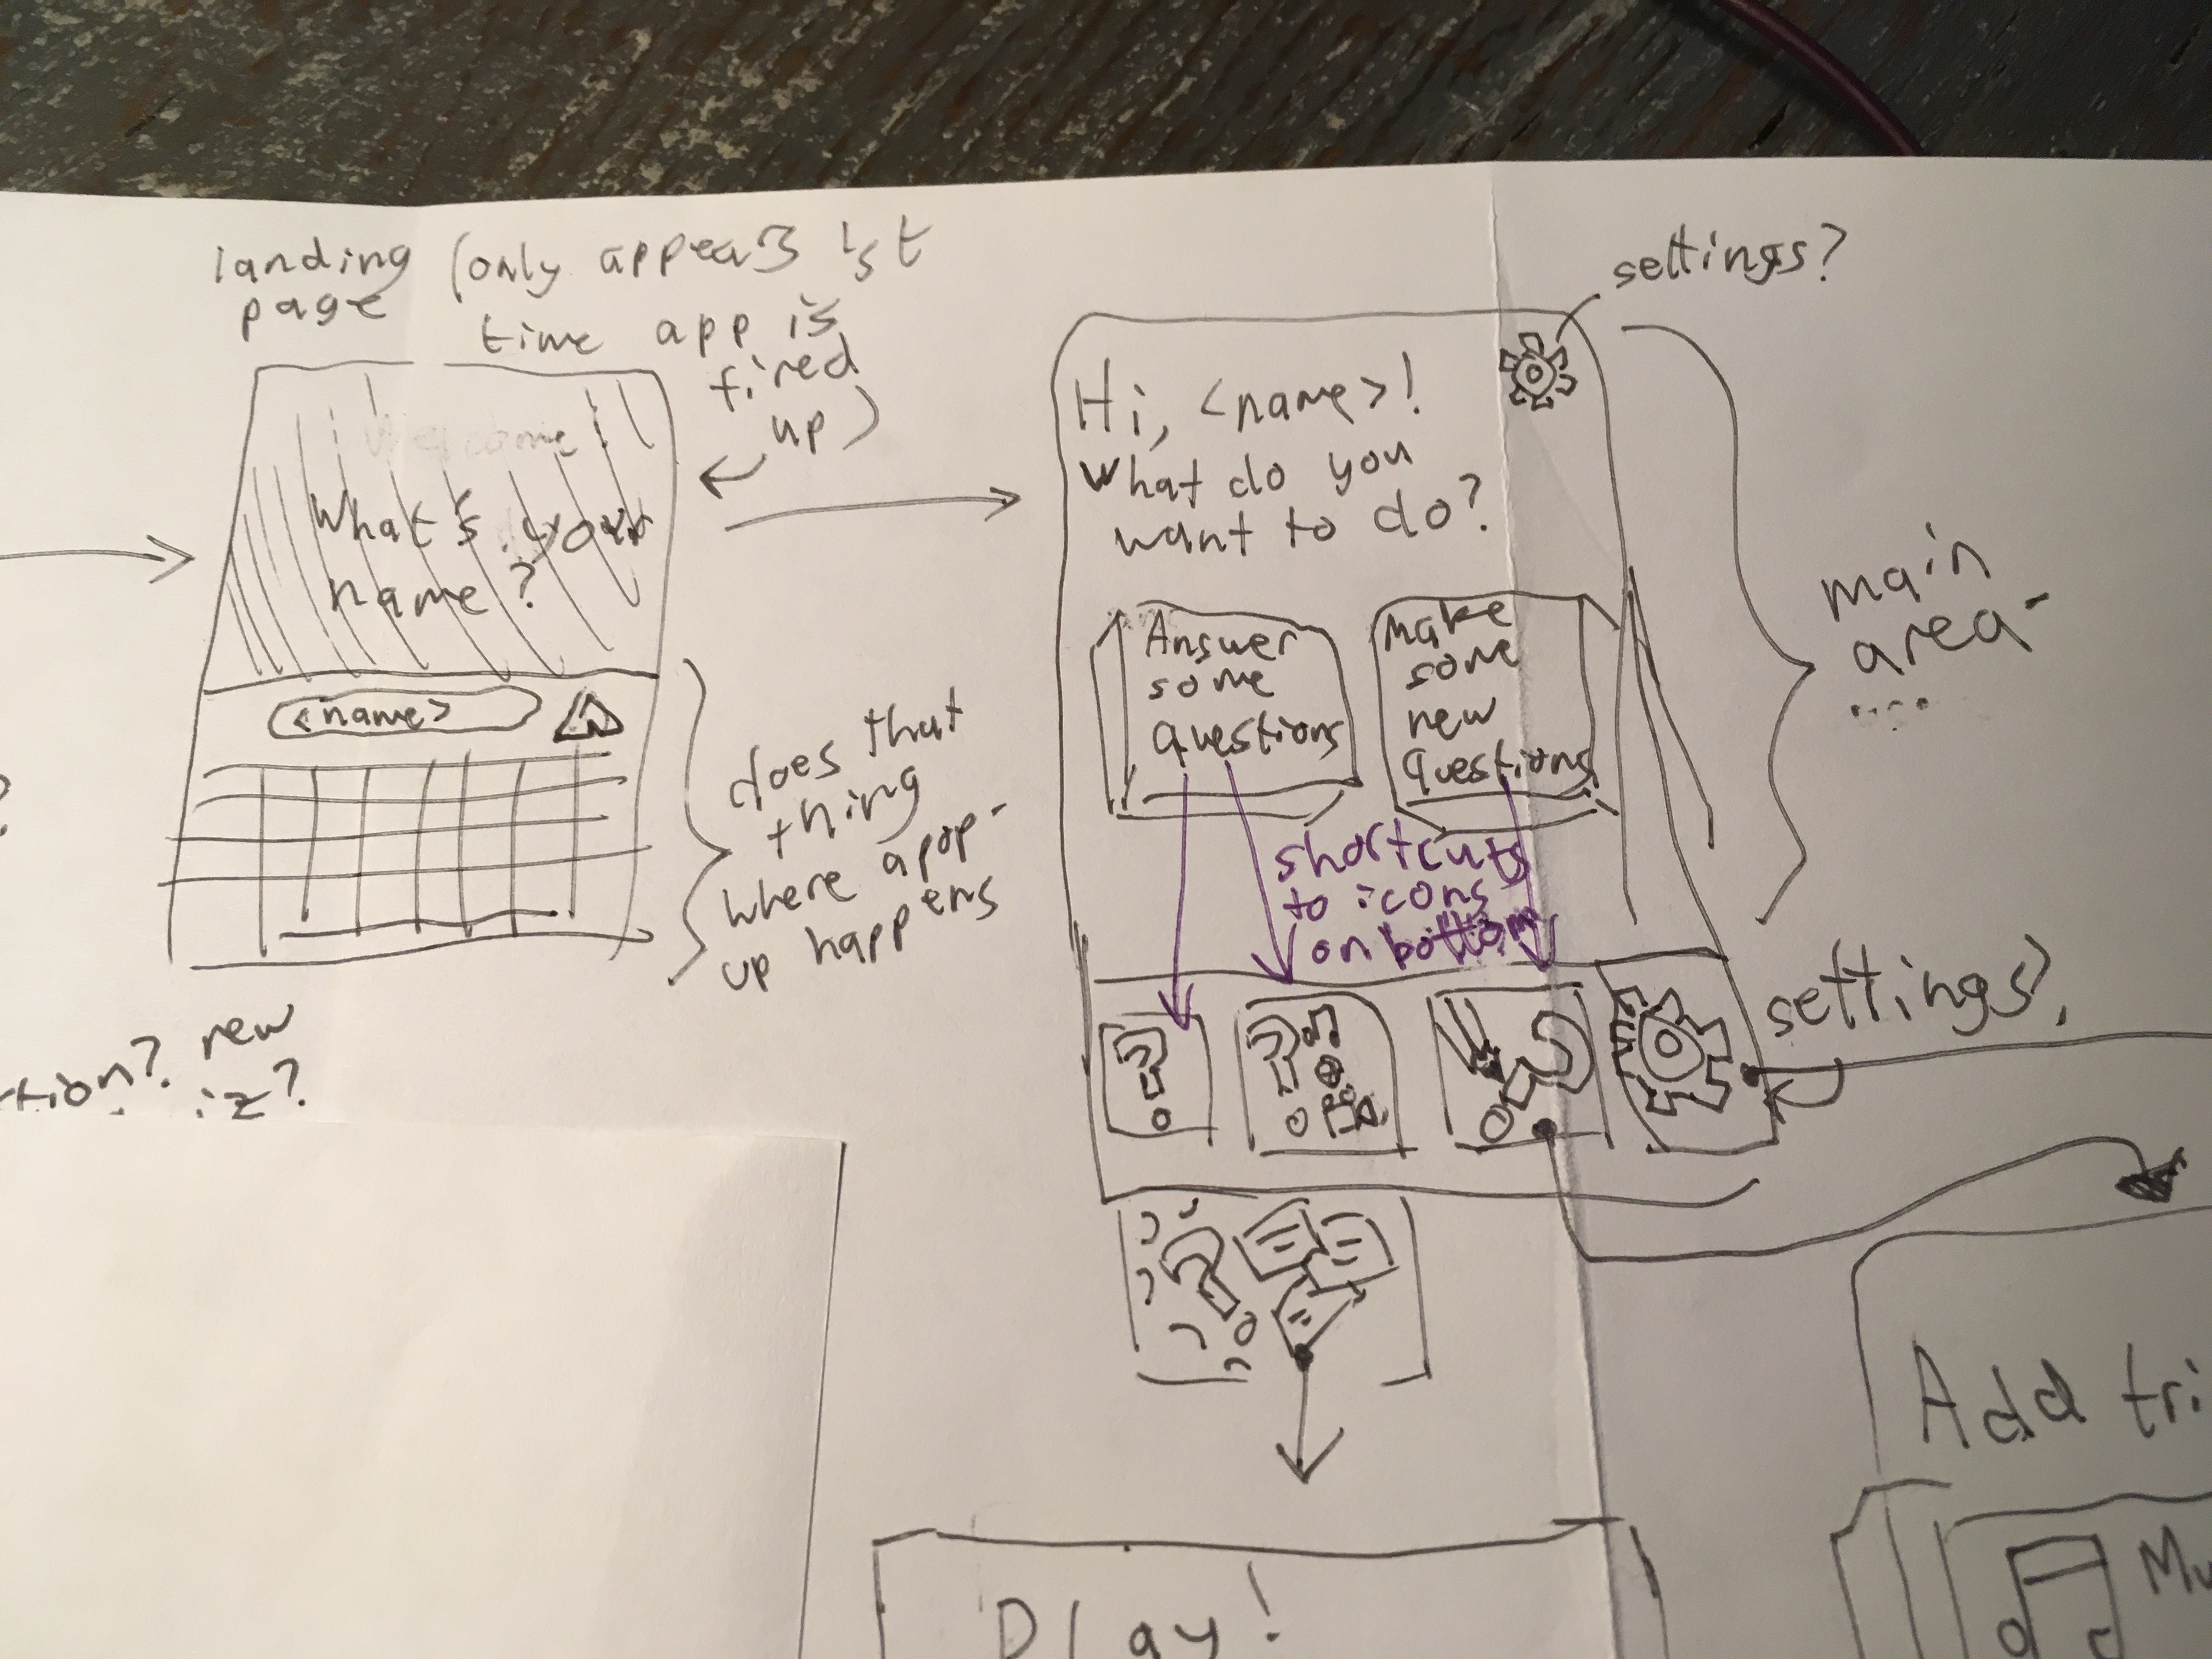 landing (only appears 1st
page
time app is
fired
up)
Welcome
What's your
name?
<name>
does that
thing
where a pop-
up happens
new
iz?
settings?
Hi, <name>!
What do you
want to do?
Answer
some
questions
Make
some
new
questions
shortcuts
to icons
on bottom
main
area-
settings?
Play!
Add tri
Mu